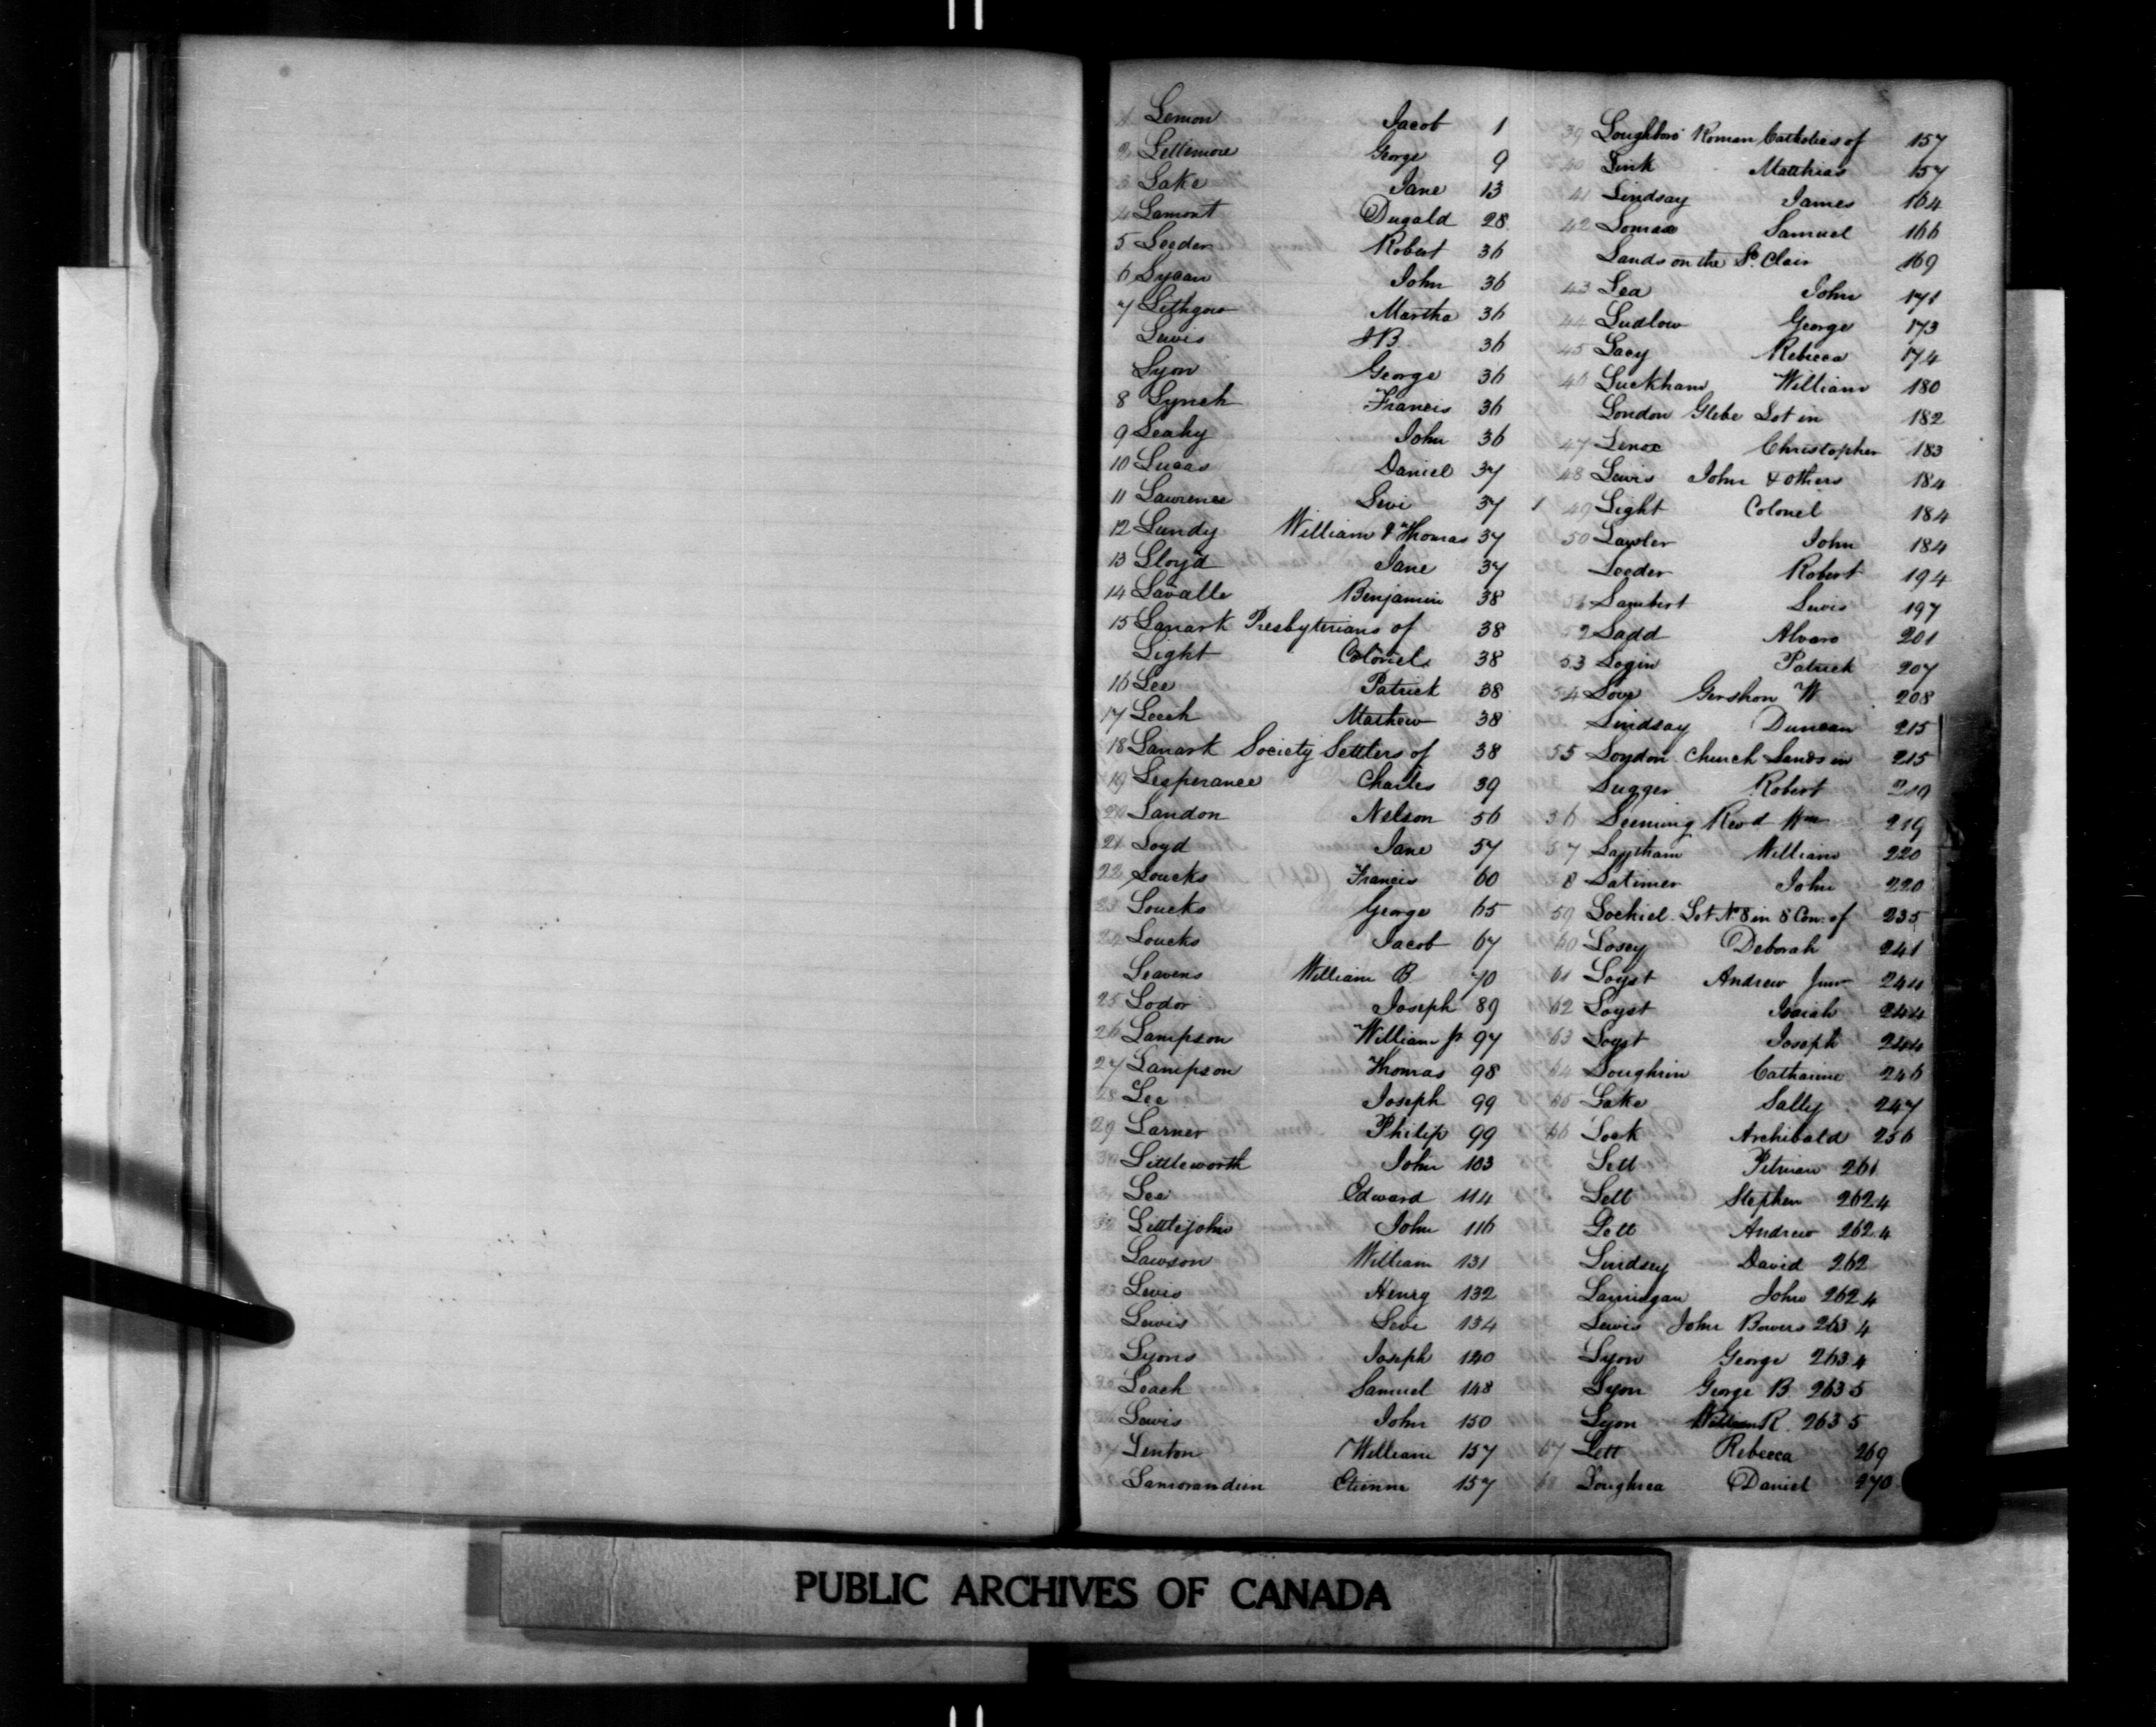 1 Lemon Jacob 1
2 Lettemore George 9
3 Lake Jane 13
4 Lamont Dugald 28
5 Leeder Robert 36
6 Lycan John 36
7 Lithgow Martha 36
Lewis J B 36
Lyon George 36
8 Lynch Francis 36
9 Leahy John 36
10 Lucas Daniel 37
11 Lawrence Levi 37
12 Lundy William & Thomas 37
13 Lloyd Jane 37
14 Lavalle Benjamin 38
15 Lanark Presbyterians of 38
Light Colonel 38
16 Lee Patrick 38
17 Leech Mathew 38
18 Lanark Society Settlers of 38
19 Lesperance Charles 39
20 Landon Nelson 56
21 Loyd Jane 57
22 Loucks Francis 60
23 Loucks George 65
24 Loucks Jacob 67
Leavens William B 70
25 Lodor Joseph 89
26 Lampson William Jr 97
27 Lampson Thomas 98
28 Lee Joseph 99
29 Larner Philip 99
30 Littleworth John 103
31 Lee Edward 114
32 Littlejohn John 116
Lawson William 131
33 Lewis Henry 132
Lewis Levi 134
Lyons Joseph 140
35 Leach Samuel 148
36 Lewis John 150
37 Lenton William 157
Lamorandien Etienne 157
39 Loughboro' Roman Catholics of 157
40 Link Matthias 157
41 Lindsay James 164
42 Lomax Samuel 166
Lands on the St. Clair 169
43 Lea John 171
44 Ludlow George 173
45 Lacy Rebecca 174
46 Luckham William 180
London Glebe Lot in 182
47 Lenox Christopher 183
48 Lewis John & others 184
1 49 Light Colonel 184
50 Lawler John 184
Leeder Robert 194
51 Lambert Lewis 197
52 Ladd Alvaro 201
53 Login Patrick 207
54 Love Gershon W 208
Lindsay Duncan 215
55 London Church Lands in 215
Lugger Robert 219
56 Leeming Revd Wm 219
57 Laytham William 220
8 Latimer John 220
59 Lochiel Lot No 8 in 8 Con. of 235
60 Losey Deborah 241
61 Loyst Andrew Junr 244
62 Loyst Isaiah 244
63 Loyst Joseph 244
64 Loughrin Catharine 246
65 Lake Sally 247
66 Lock Archibald 256
Lett Pitman 261
Lett Stephen 262 4
Lett Andrew 262 4
Lindsey David 262
Lannigan John 262 4
Lewis John Bowers 263 4
Lyon George 263 4
Lyon George B 263 5
Lyon William R. 263 5
67 Lott Rebecca 269
68 Loughrea Daniel 270
PUBLIC ARCHIVES OF CANADA